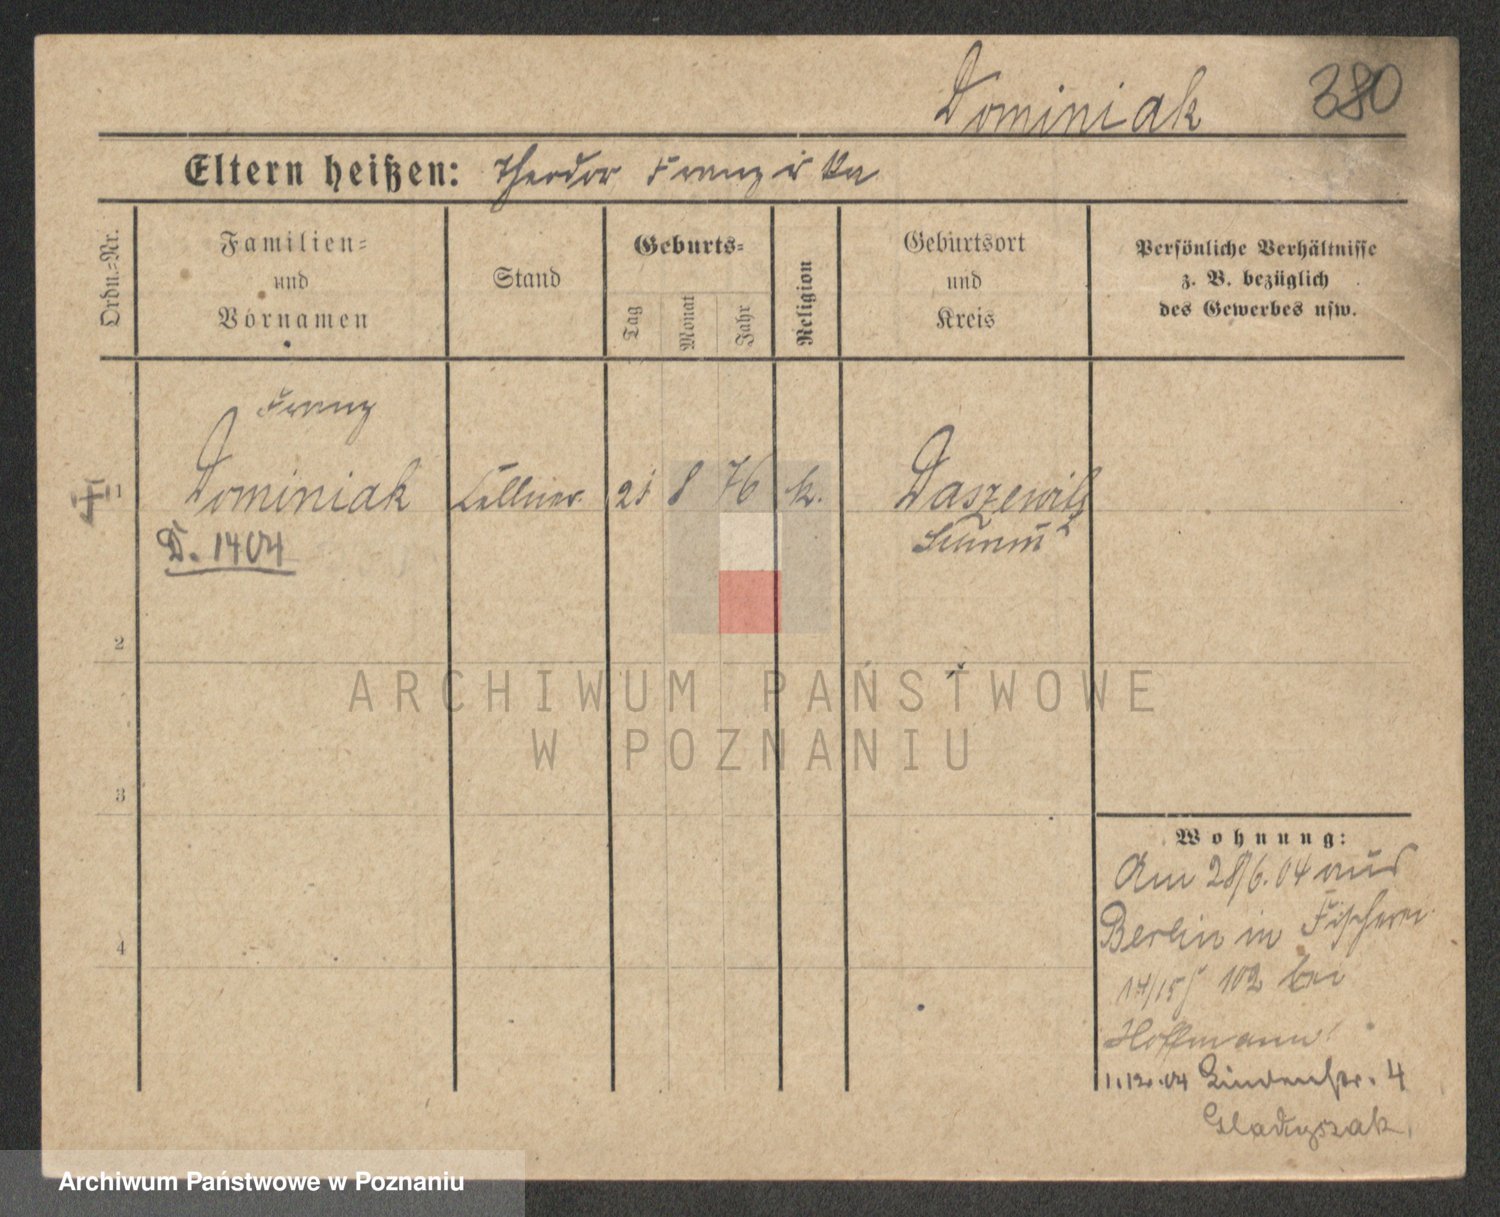 Dominiak
380
Eltern heißen: Theodor Franziska
Ordn.=Nr.
Familien=
und
Vornamen
Stand
Geburts=
Tag
Monat
Jahr
Religion
Geburtsort
und
Kreis
Persönliche Verhältnisse
z. B. bezüglich
des Gewerbes usw.
Franz
1 Dominiak Kellner 21 8 76 k. Daszewitz
D. 1404
2
3
4
Wohnung:
Am 28/6.04 aus
Berlin in Fischerei
14/15 102 bei
Hoffmann
1.12.04 Lindenstr. 4
Gladyszak
ARCHIWUM PAŃSTWOWE
W POZNANIU
Archiwum Państwowe w Poznaniu